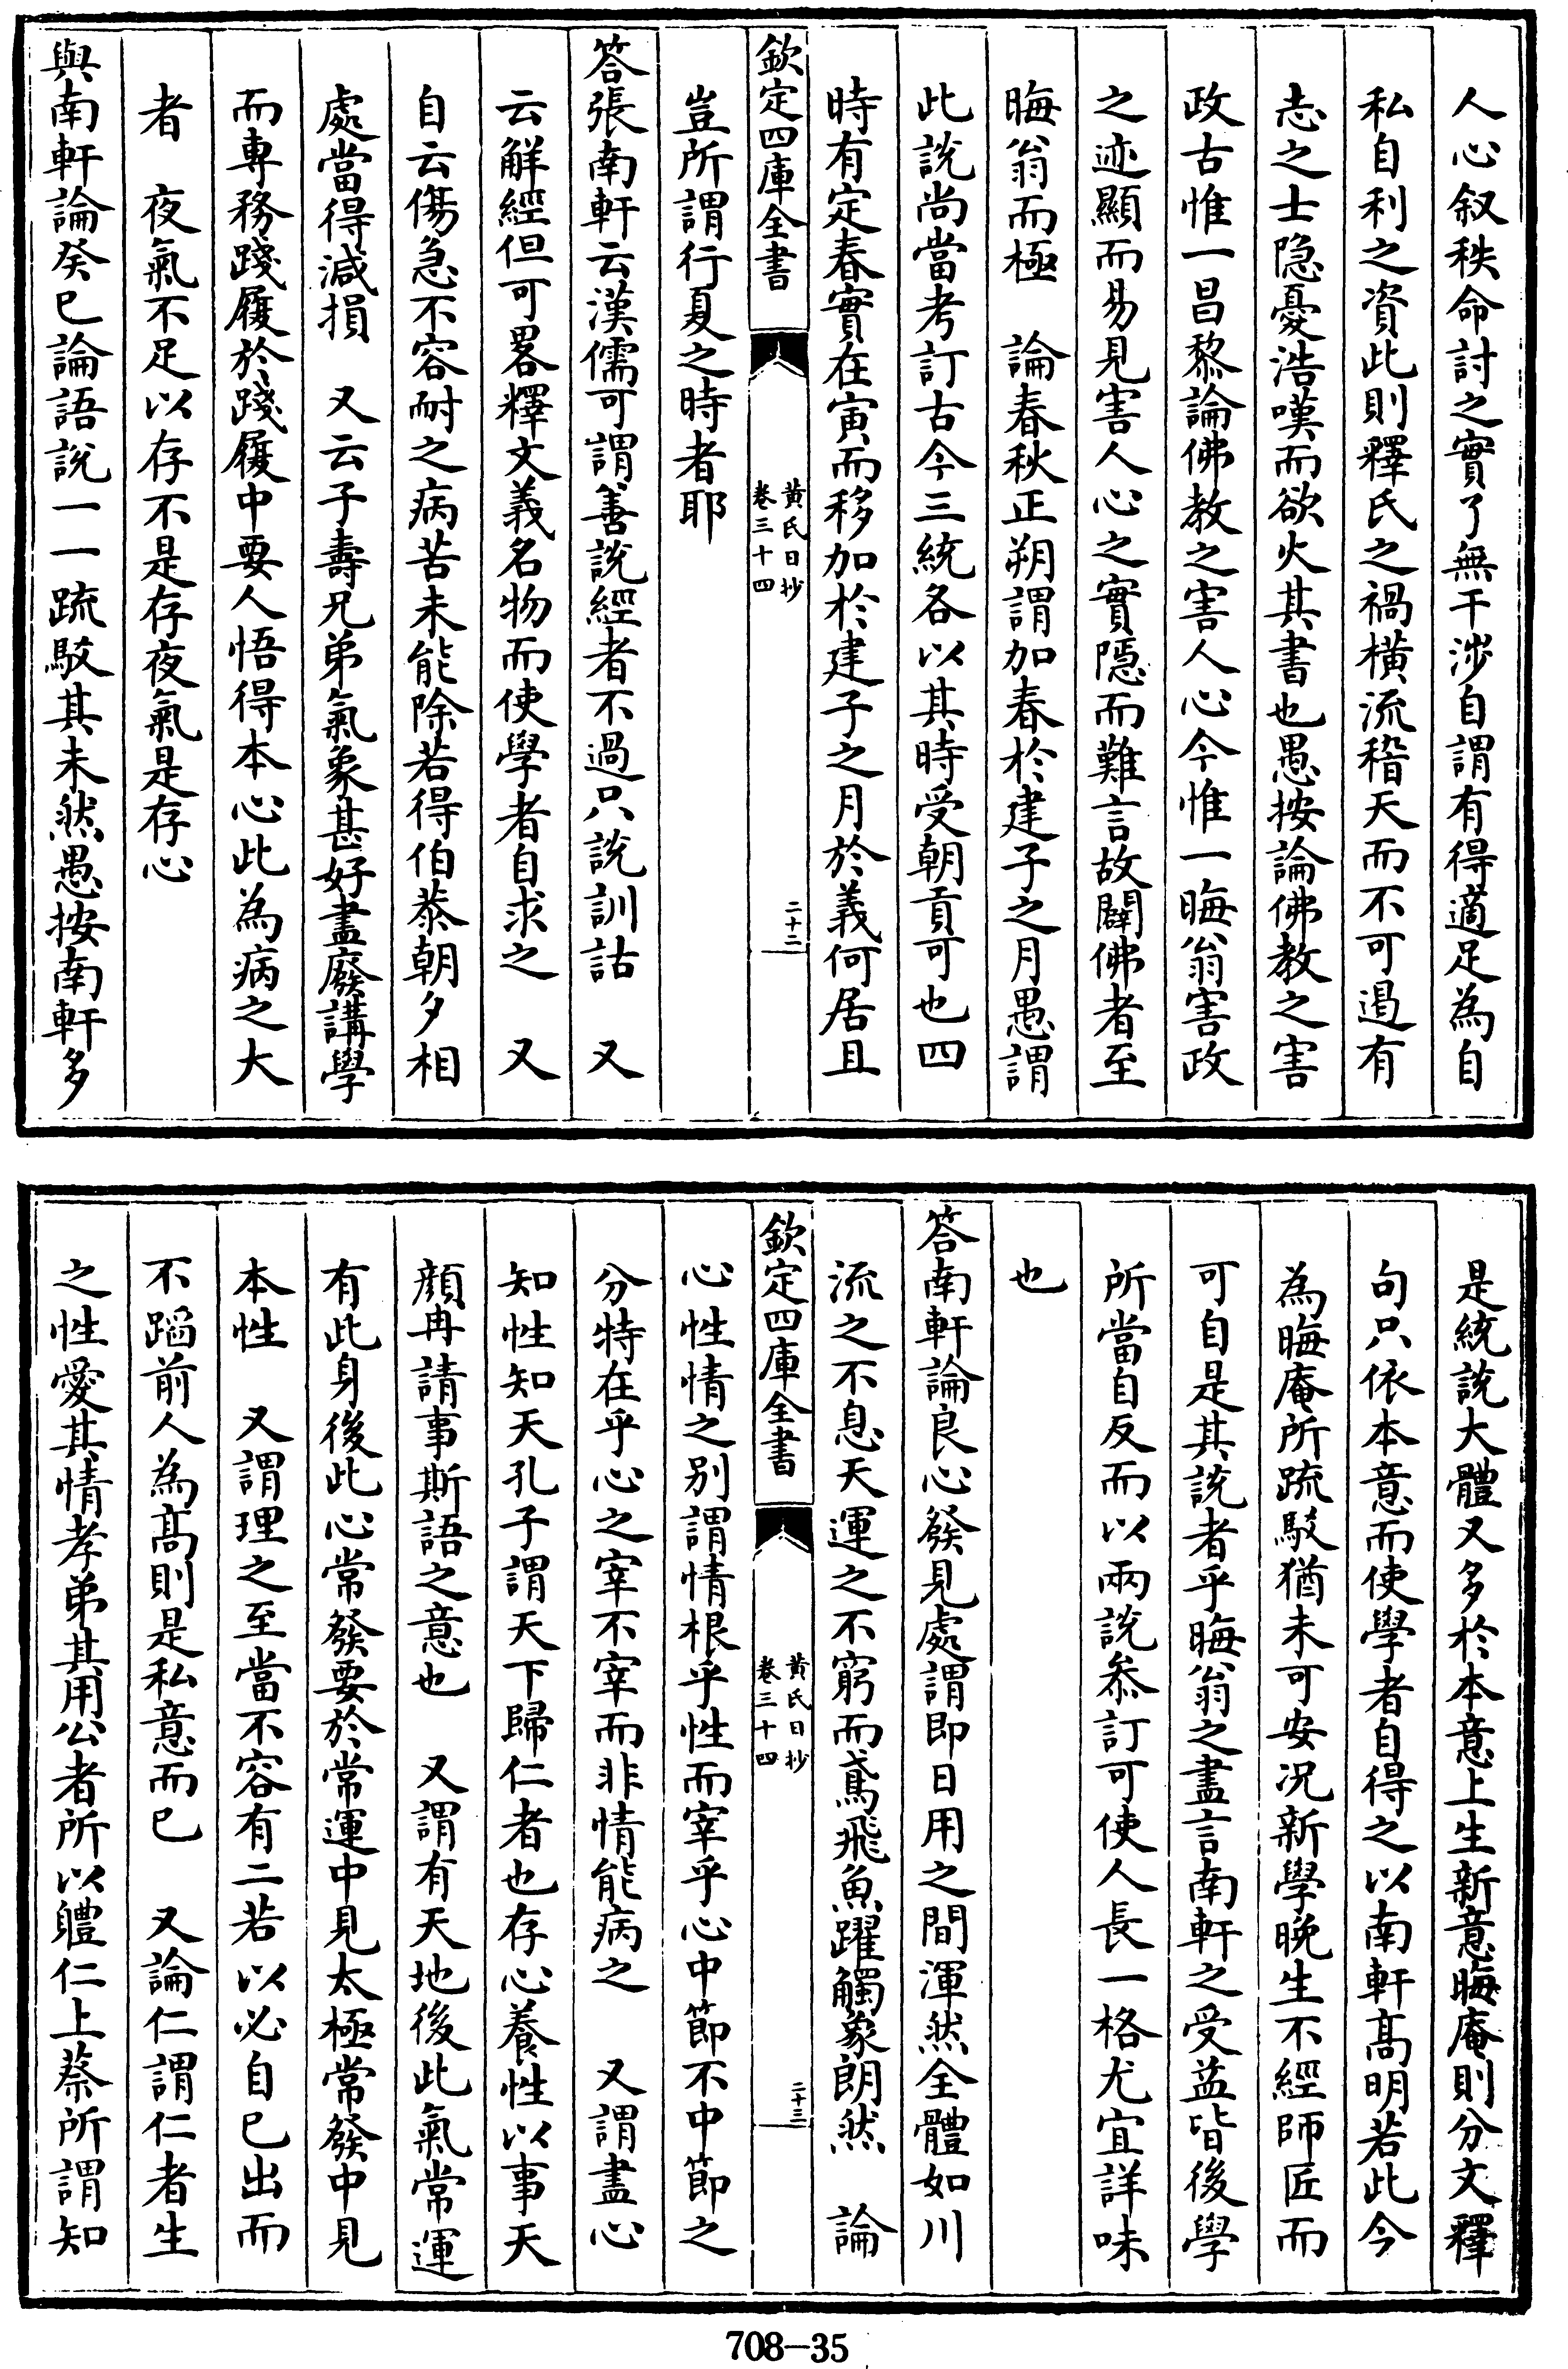 人心叙秩命討之實了無干涉自謂有得適足為自
私自利之資此則釋氏之禍横流稽天而不可遏有
志之士隐憂浩嘆而欲火其書也愚按論佛教之害
政古惟一昌黎論佛教之害人心今惟一晦翁害政
之迹顯而易見害人心之實隱而難言故闢佛者至
晦翁而極　論春秋正朔謂加春於建子之月愚謂
此說尚當考訂古今三統各以其時受朝貢可也四
時有定春實在寅而移加於建子之月於義何居且
豈所謂行夏之時者耶
欽定四庫全書
黄氏日抄
卷三十四
二十二
答張南軒云漢儒可謂善說經者不過只說訓詁　又
云解經但可畧釋文義名物而使學者自求之　又
自云傷急不容耐之病苦未能除若得伯恭朝夕相
處當得減損　又云子壽兄弟氣象甚好盡廢講學
而専務踐履於踐履中要人悟得本心此為病之大
者　夜氣不足以存不是存夜氣是存心
與南軒論癸巳論語說一一疏駁其未然愚按南軒多
是統說大體又多於本意上生新意晦庵則分文釋
句只依本意而使學者自得之以南軒髙明若此今
為晦庵所疏駁猶未可安况新學晚生不經師匠而
可自是其說者乎晦翁之盡言南軒之受益皆後學
所當自反而以兩說叅訂可使人長一格尤宜詳味
也
答南軒論良心發見處謂即日用之間渾然全體如川
流之不息天運之不窮而鳶飛魚躍觸象朗然　論
心性情之别謂情根乎性而宰乎心中節不中節之
欽定四庫全書
黄氏日抄
卷三十四
二十三
分特在乎心之宰不宰而非情能病之　又謂盡心
知性知天孔子謂天下歸仁者也存心養性以事天
顔冉請事斯語之意也　又謂有天地後此氣常運
有此身後此心常發要於常運中見太極常發中見
本性　又謂理之至當不容有二若以必自已出而
不蹈前人為髙則是私意而已　又論仁謂仁者生
之性愛其情孝弟其用公者所以體仁上蔡所謂知
708-35